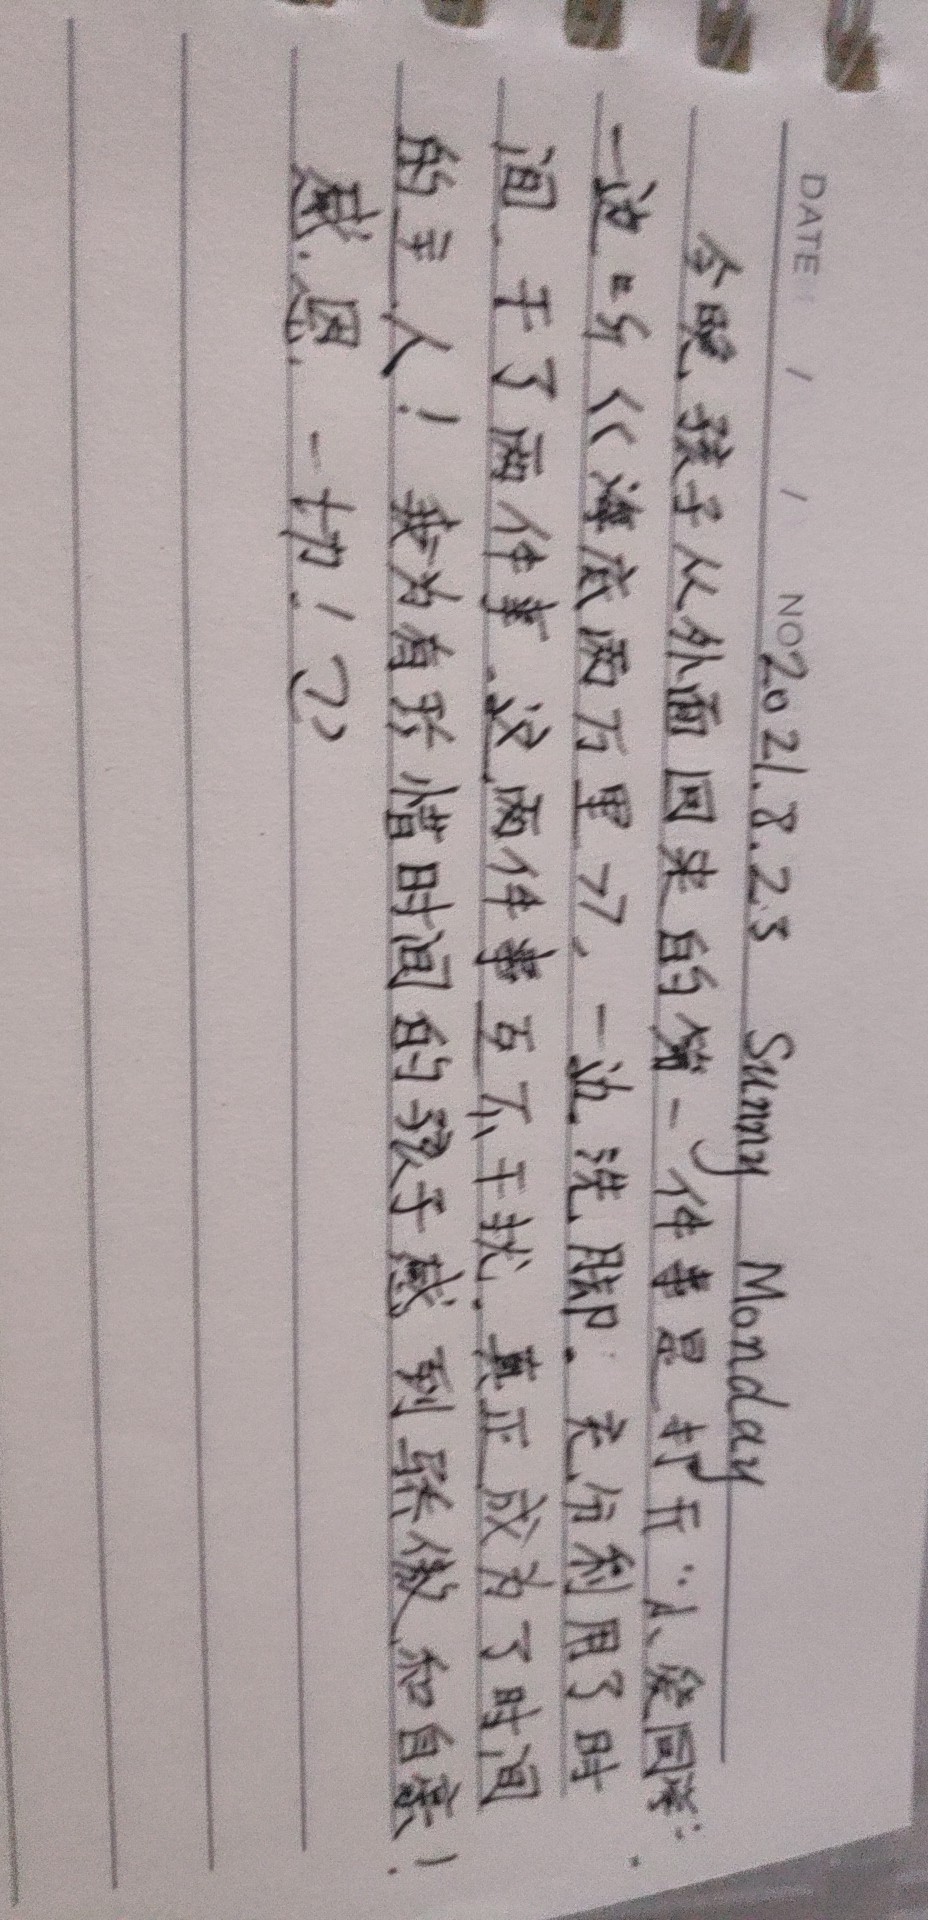 DATE / / NO 2021.8.23 Sunny Monday
今晚,孩子从外面回来的第一件事是打开“小爱同学”,
一边听《海底两万里》,一边洗脚。充分利用了时
间,干了两件事,这两件事互不干扰,真正成为了时间
的主人!我为有珍惜时间的孩子感到骄傲和自豪!
感恩一切!